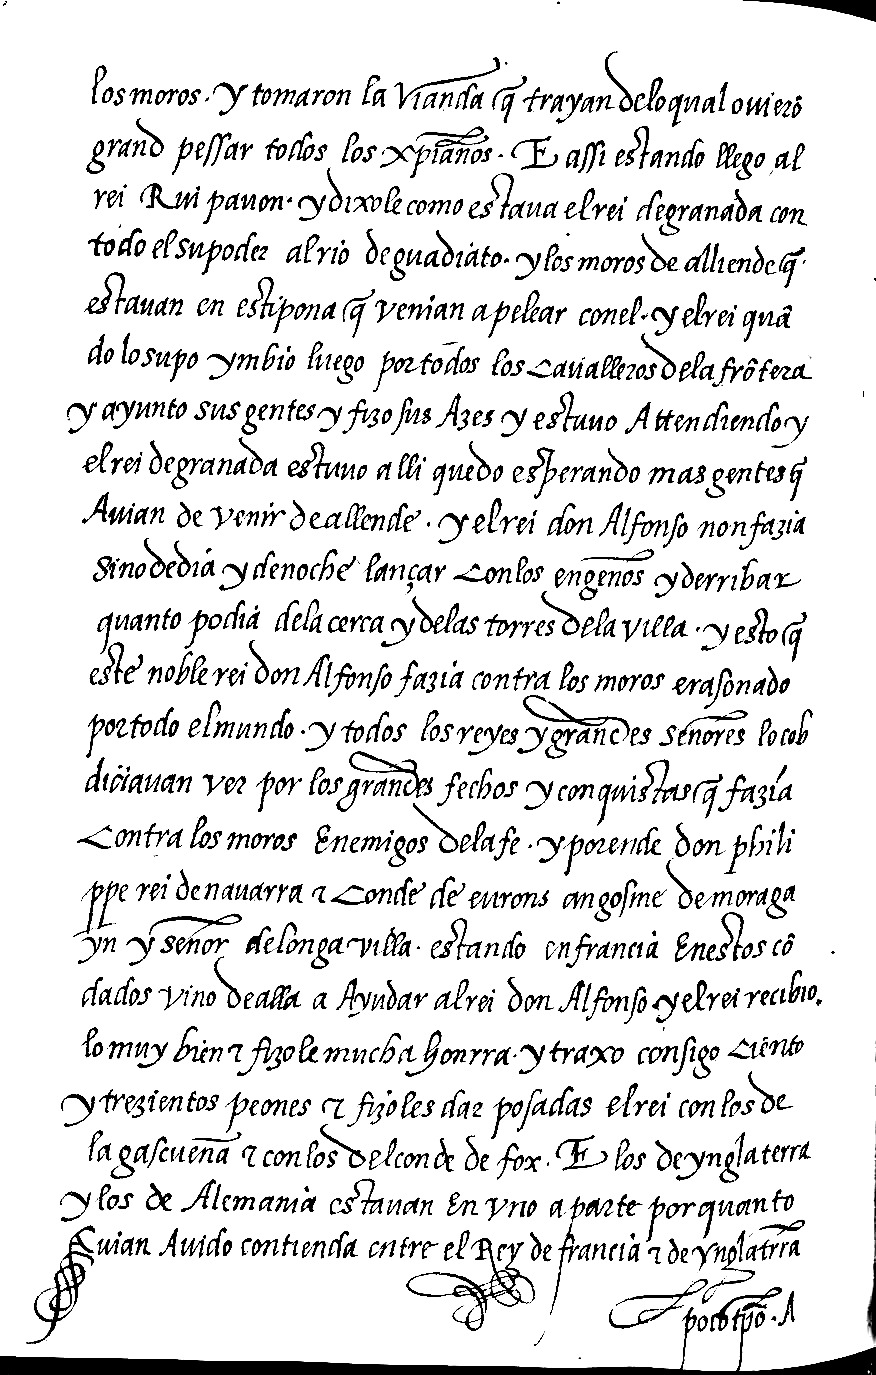 los moros. y tomaron la vianda q̃ trayan delo qual ouierõ
grand pessar todos los xp̃ianos. E assi estando llego al
rei Rui pauon. y dixole como estaua el rei de granada con
todo el su poder al rio de guadiato. y los moros de alliende q̃
estauan en estipona q̃ venian a pelear conel. y el rei quã
do lo supo ymbio luego por todos los Caualleros dela frõtera
y ayunto sus gentes y fizo sus Azes y estuuo Attendiendo y
el rei de granada estuuo alli quedo esperando mas gentes q̃
Auian de venir de allende. y el rei don Alfonso non fazia
sino de dia y de noche lançar Con los engenos y derribar
quanto podia dela cerca y delas torres dela villa. y esto q̃
este noble rei don Alfonso fazia contra los moros era sonado
por todo el mundo. y todos los reyes y grandes señores lo cob
diciauan ver por los grandes fechos y conquistas q̃ fazia
Contra los moros Enemigos dela fe. y por ende don phili
ppe rei de nauarra τ Conde de eurons angosme de moraga
yn y señor de longa villa. estando en francia En estos cõ
dados vino de alla a Ayudar al rei don Alfonso y el rei recibio.
lo muy bien τ fizole mucha honrra. y traxo consigo Ciento
y trezientos peones τ fizoles dar posadas el rei con los de
la gascueña τ con los del conde de fox. E los de ynglaterra
y los de Alemania estauan En vno a parte por quanto
Auian Auido contienda entre el Rey de francia τ de ynglatr̃ra
poco tp̃o. A